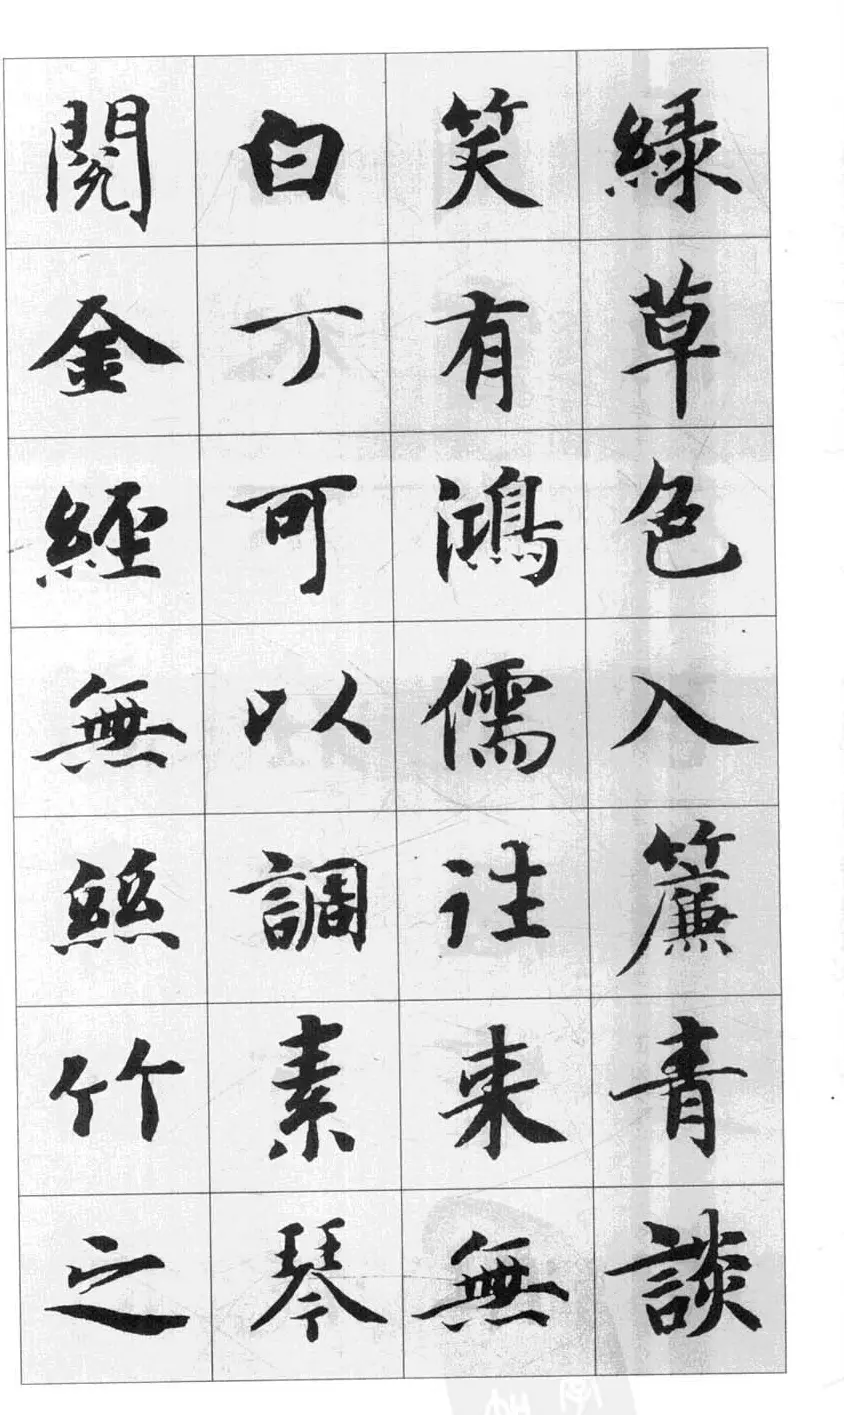 緑草色入簾青談
笑有鴻儒往来無
白丁可以調素琴
閱金經無絲竹之